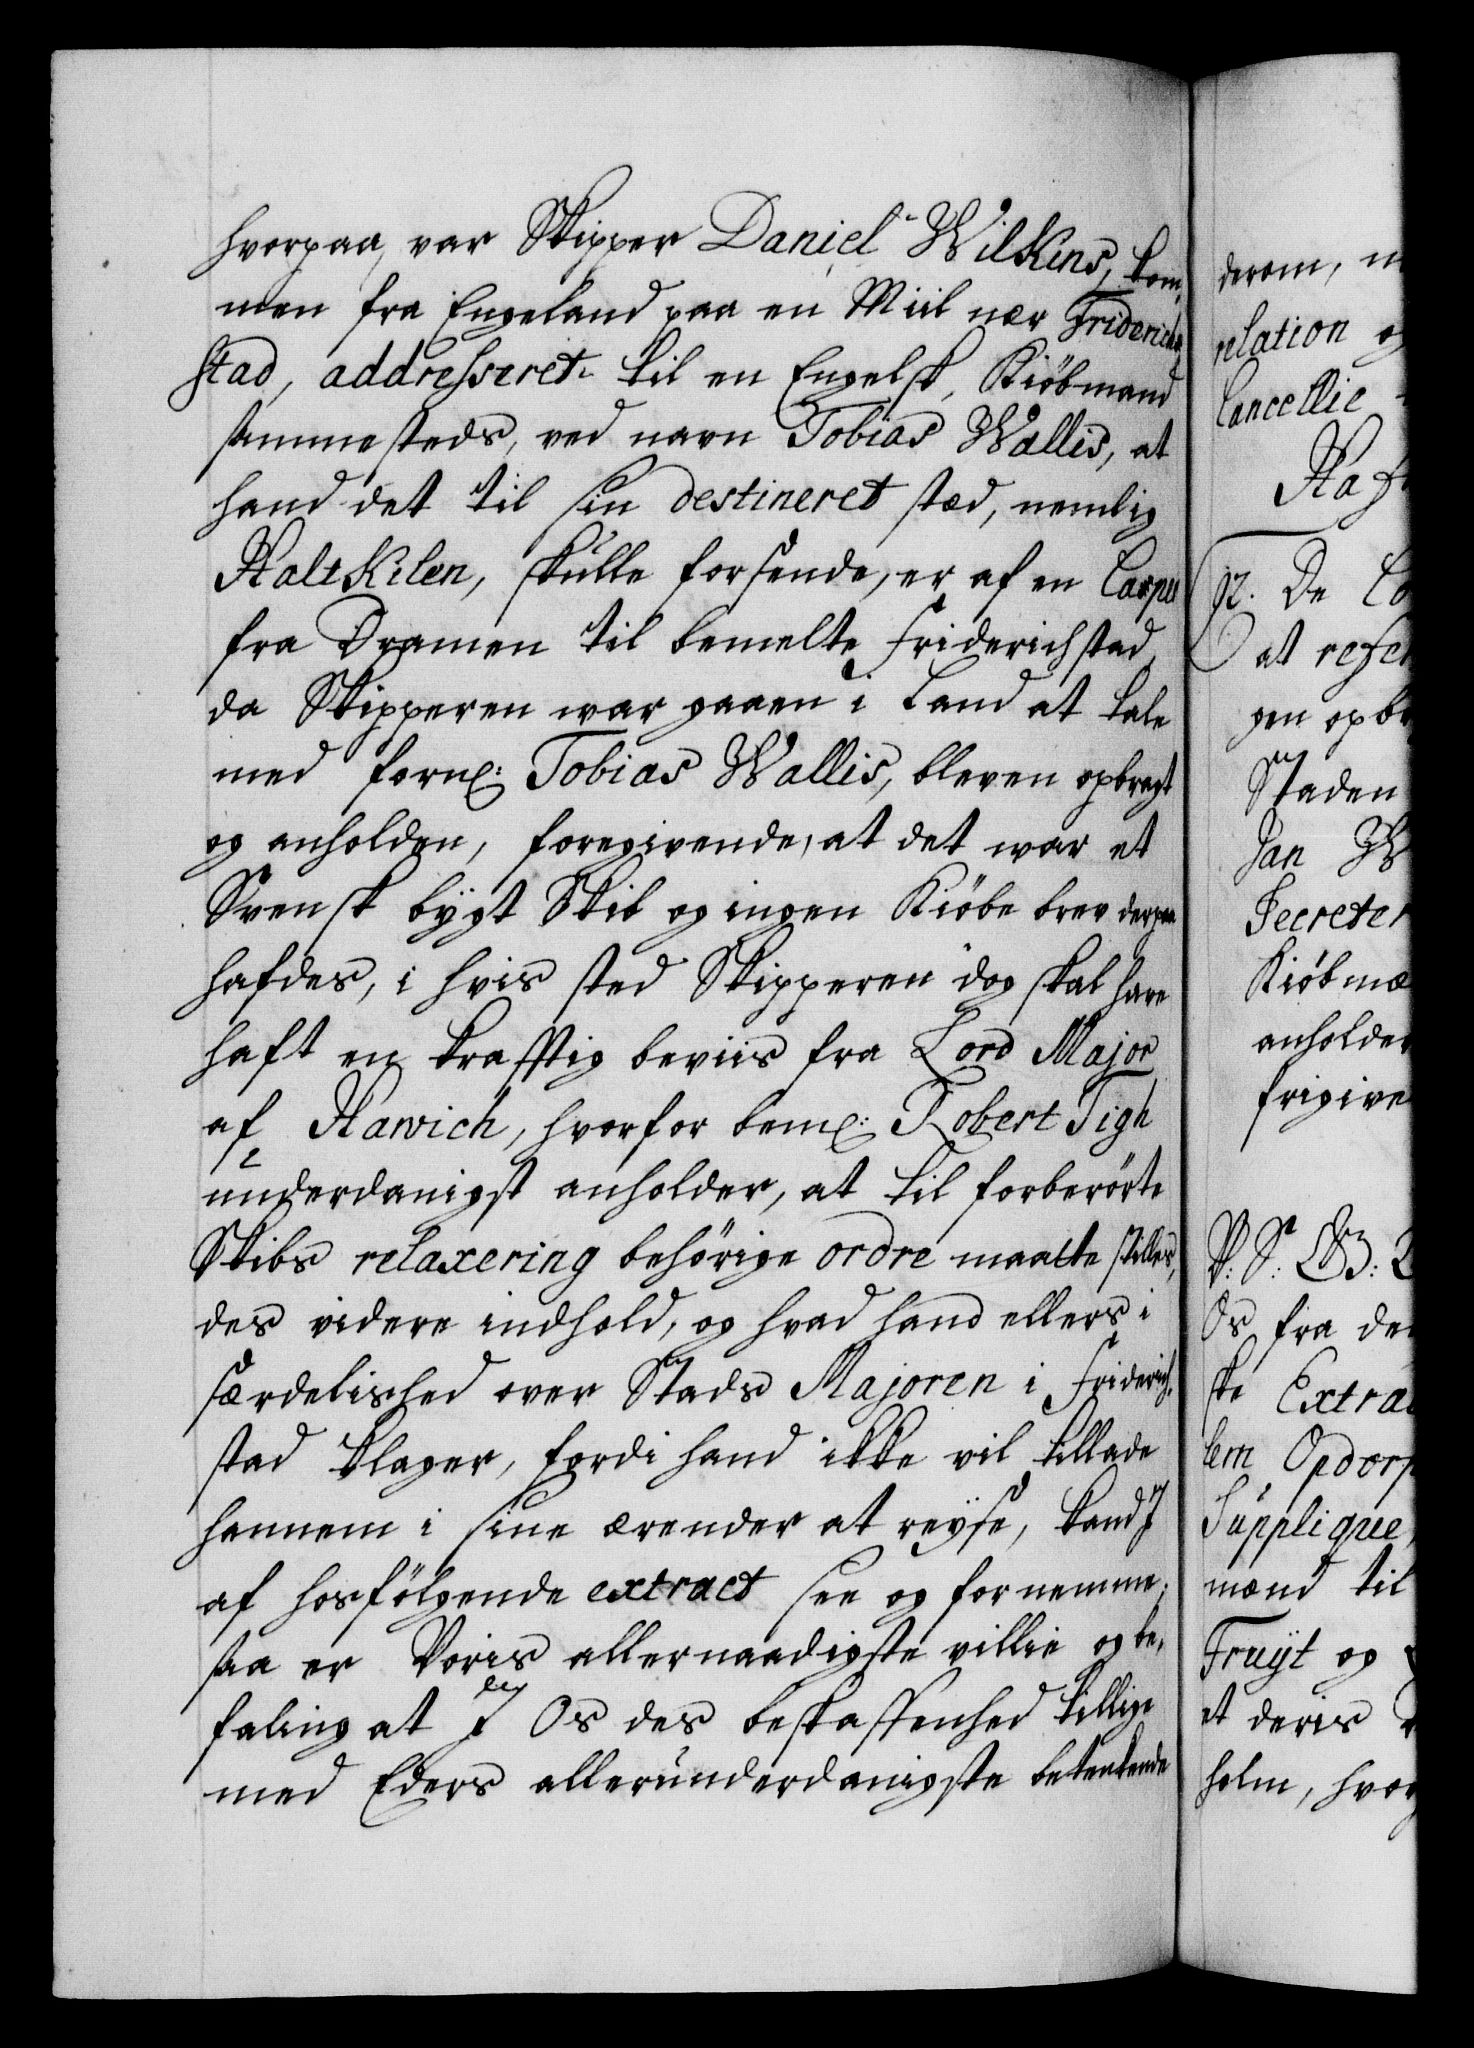 hvorpaa var Skipper Daniel Wilkins, kom-
men fra Engeland paa en Miil nær Friderich-
stad, addresseret til en Engelsk Kiöbmand
sammesteds, ved navn Tobias Wallis, at
hand det til sin destineret stæd, nemlig
Haltkilen, skulle forsende, er af en Caper
fra Dramen til bemelte Friderichstad,
da Skipperen war gaaen i Land at tale
med forne: Tobias Wallis, bleven opbragt
og anholden, foregivende, at det war et
Svensk bÿgt Skib og ingen Kiöbe brev derpaa
hafdes, i hvis sted Skipperen dog skal have
haft en kraftig beviis fra Lord Major
af Harvich, hvorfor bem:e Robert Tigh
underdanigst anholder, at til forberörte
Skibs relaxering behörige ordre maatte stilles,
des videre indhold, og hvad hand ellers i
særdelished over Stads Majoren i Friderich-
stad klager, fordi hand ikke vil tillade
hannem i sine ærender at reÿse, kand I
af hosfölgende extract see og fornemme;
saa er Voris allernaadigste villie og be-
faling at I Os des beskaffenhed tillige
med Eders allerunderdanigste betenkende
derom, 
relation og
Cancellie
92. De
at 
gen 
Staden
Jan W
Secreter
Kiöbmæ
anholder
frigive
V: S: G:
Os fra de
ske Extra
lem Opdorp
Supplique,
mænd til
Fruÿt og
et deris
holm, hvor